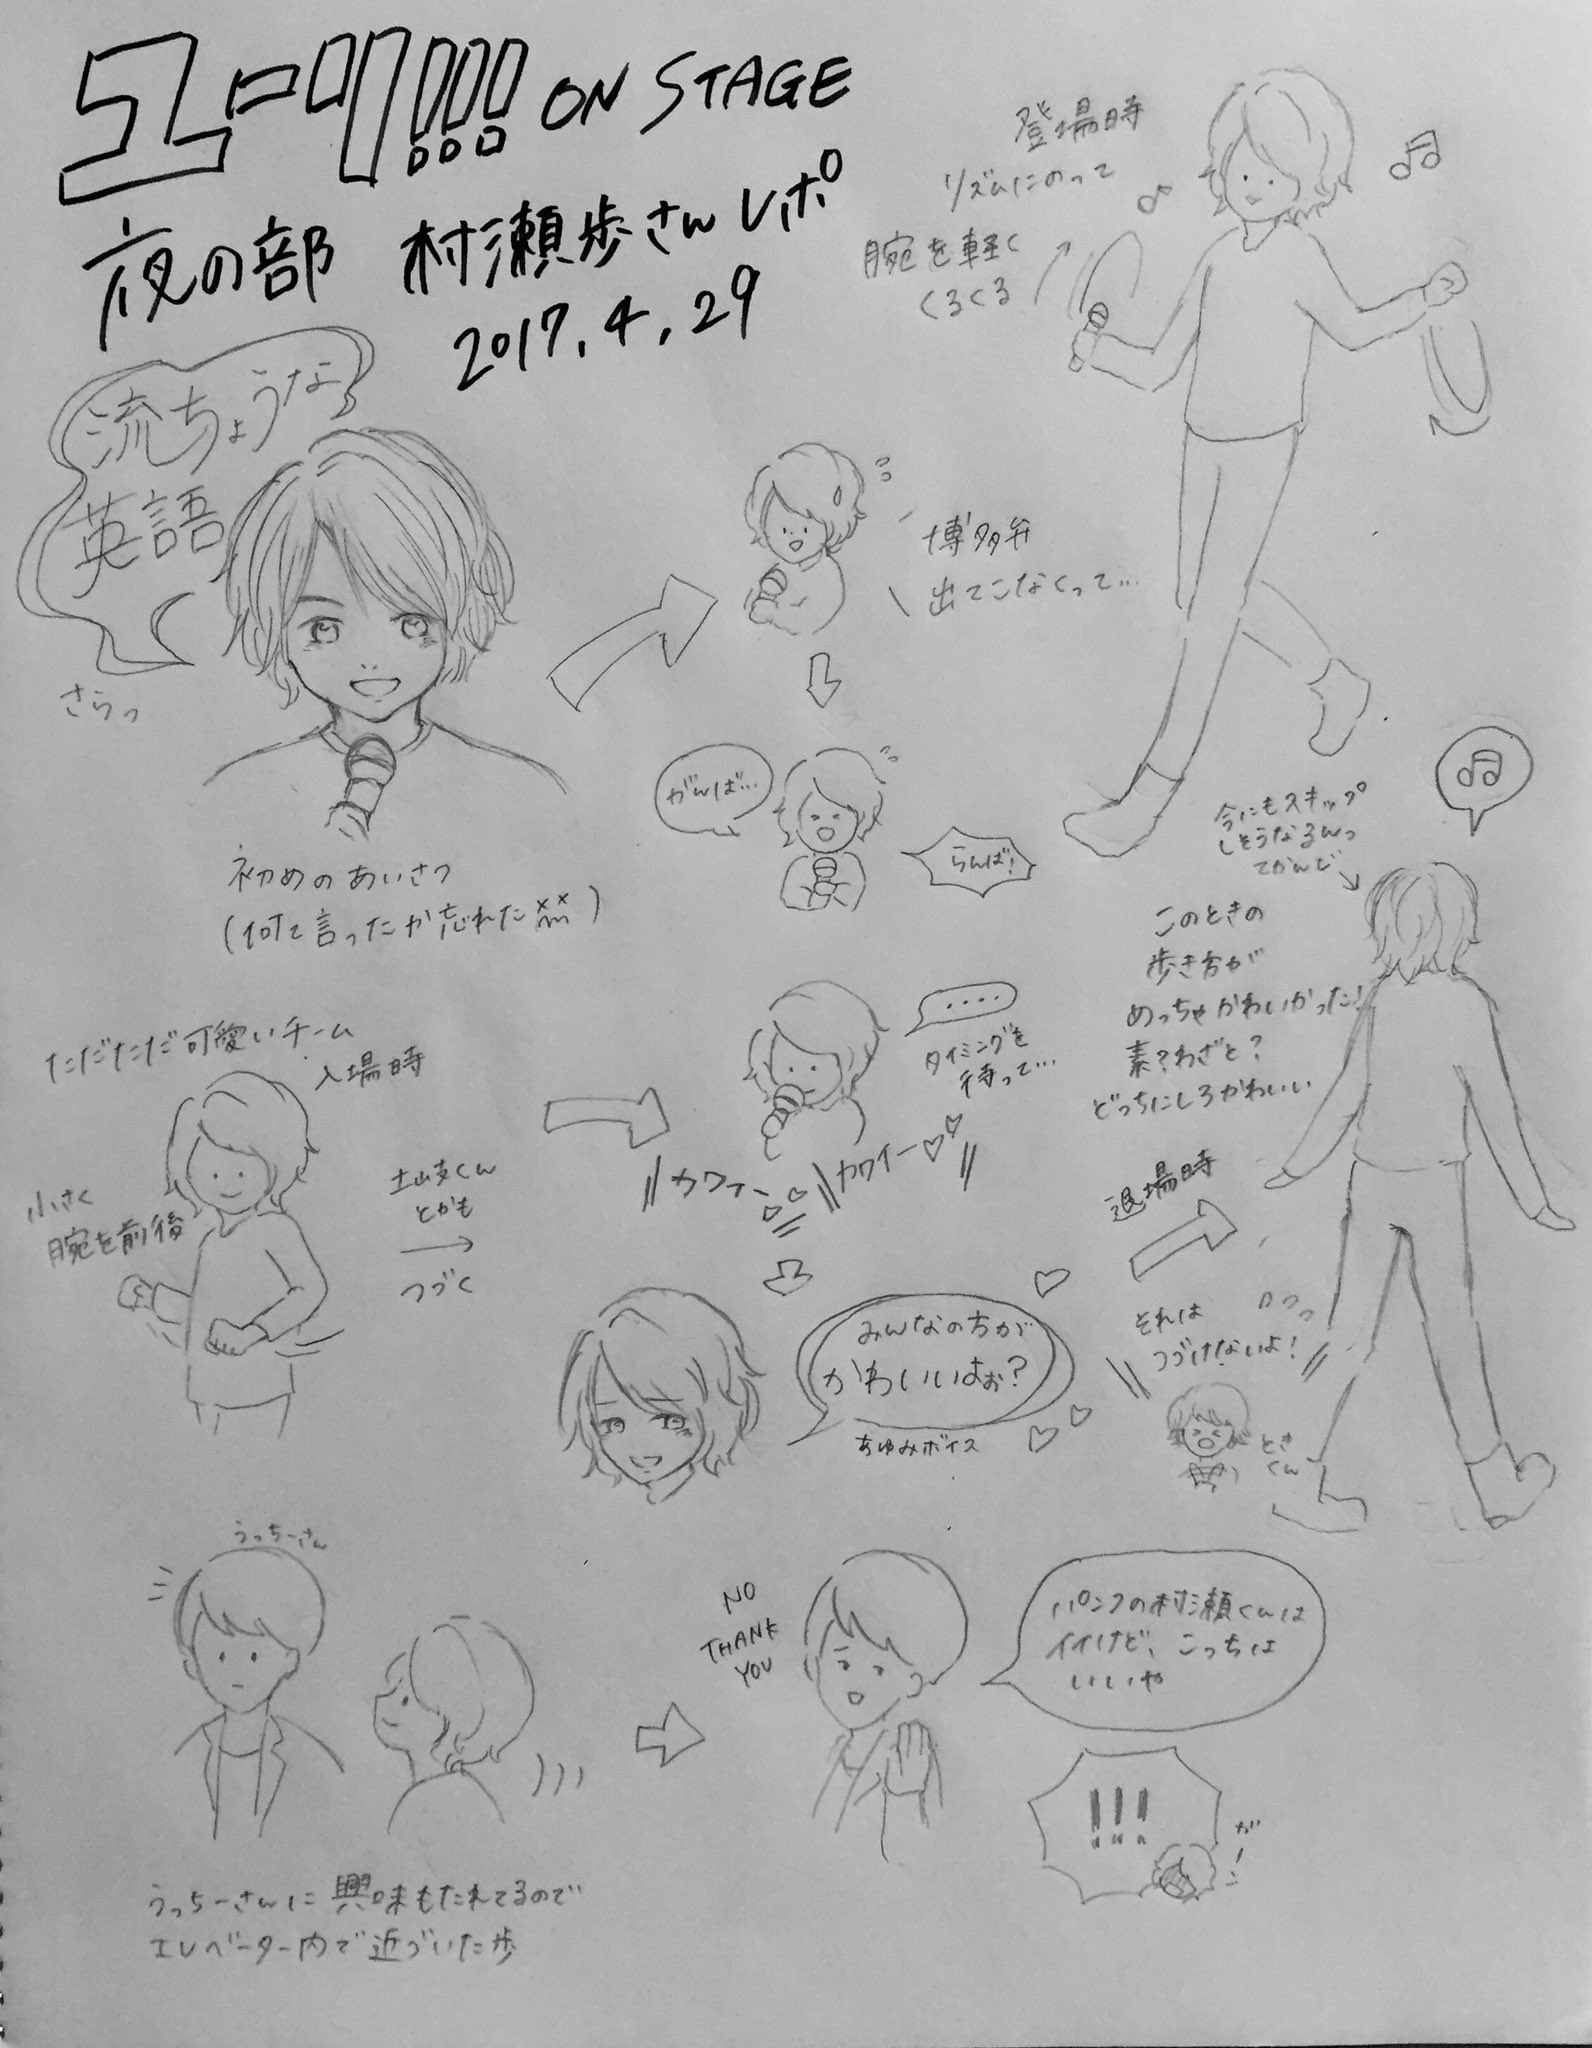 ユーリ!!! ON STAGE
夜の部 村瀬歩さんレポ
2017.4.29
登場時
リズムにのって
腕を軽く
くるくる
流ちょうな
英語
さらっ
初めのあいさつ
(何て言ったか忘れた
博多弁
出てこなくって…
がんば…
らんば!
今にもスキップ
しそうなるんっ
てかんじ
このときの
歩き方が
めっちゃかわいかった!
素?わざと?
どっちにしろかわいい
退場時
ただただ可愛いチーム
入場時
小さく
腕を前後
土岐くん
とかも
つづく
....
タイミングを
待って…
カワイー
カワイー
みんなの方が
かわいいはぉ?
あゆみボイス
それは
つづけないよ!
ときくん
うっちーさん
うっちーさんに興味もたれてるので
エレベーター内で近づいた歩
NO
THANK
YOU
パンフの村瀬くんは
イイけど、こっちは
いいや
!!!
がーン